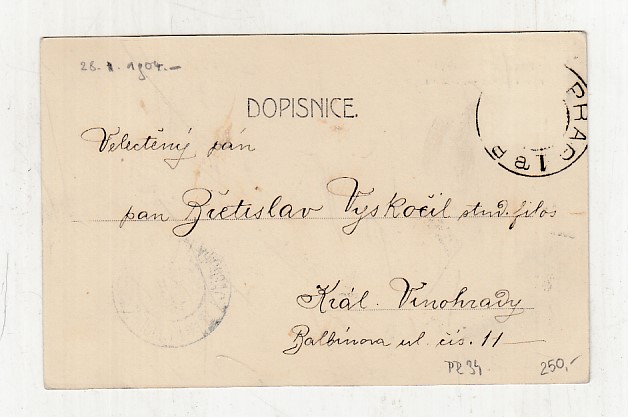 28. 1. 1904.-
DOPISNICE.
PRAG 1
Velectěný pán
pan Břetislav Vyskočil stud. filos
Král. Vinohrady
Balbínova ul. čís. 11
PR 34
250,-